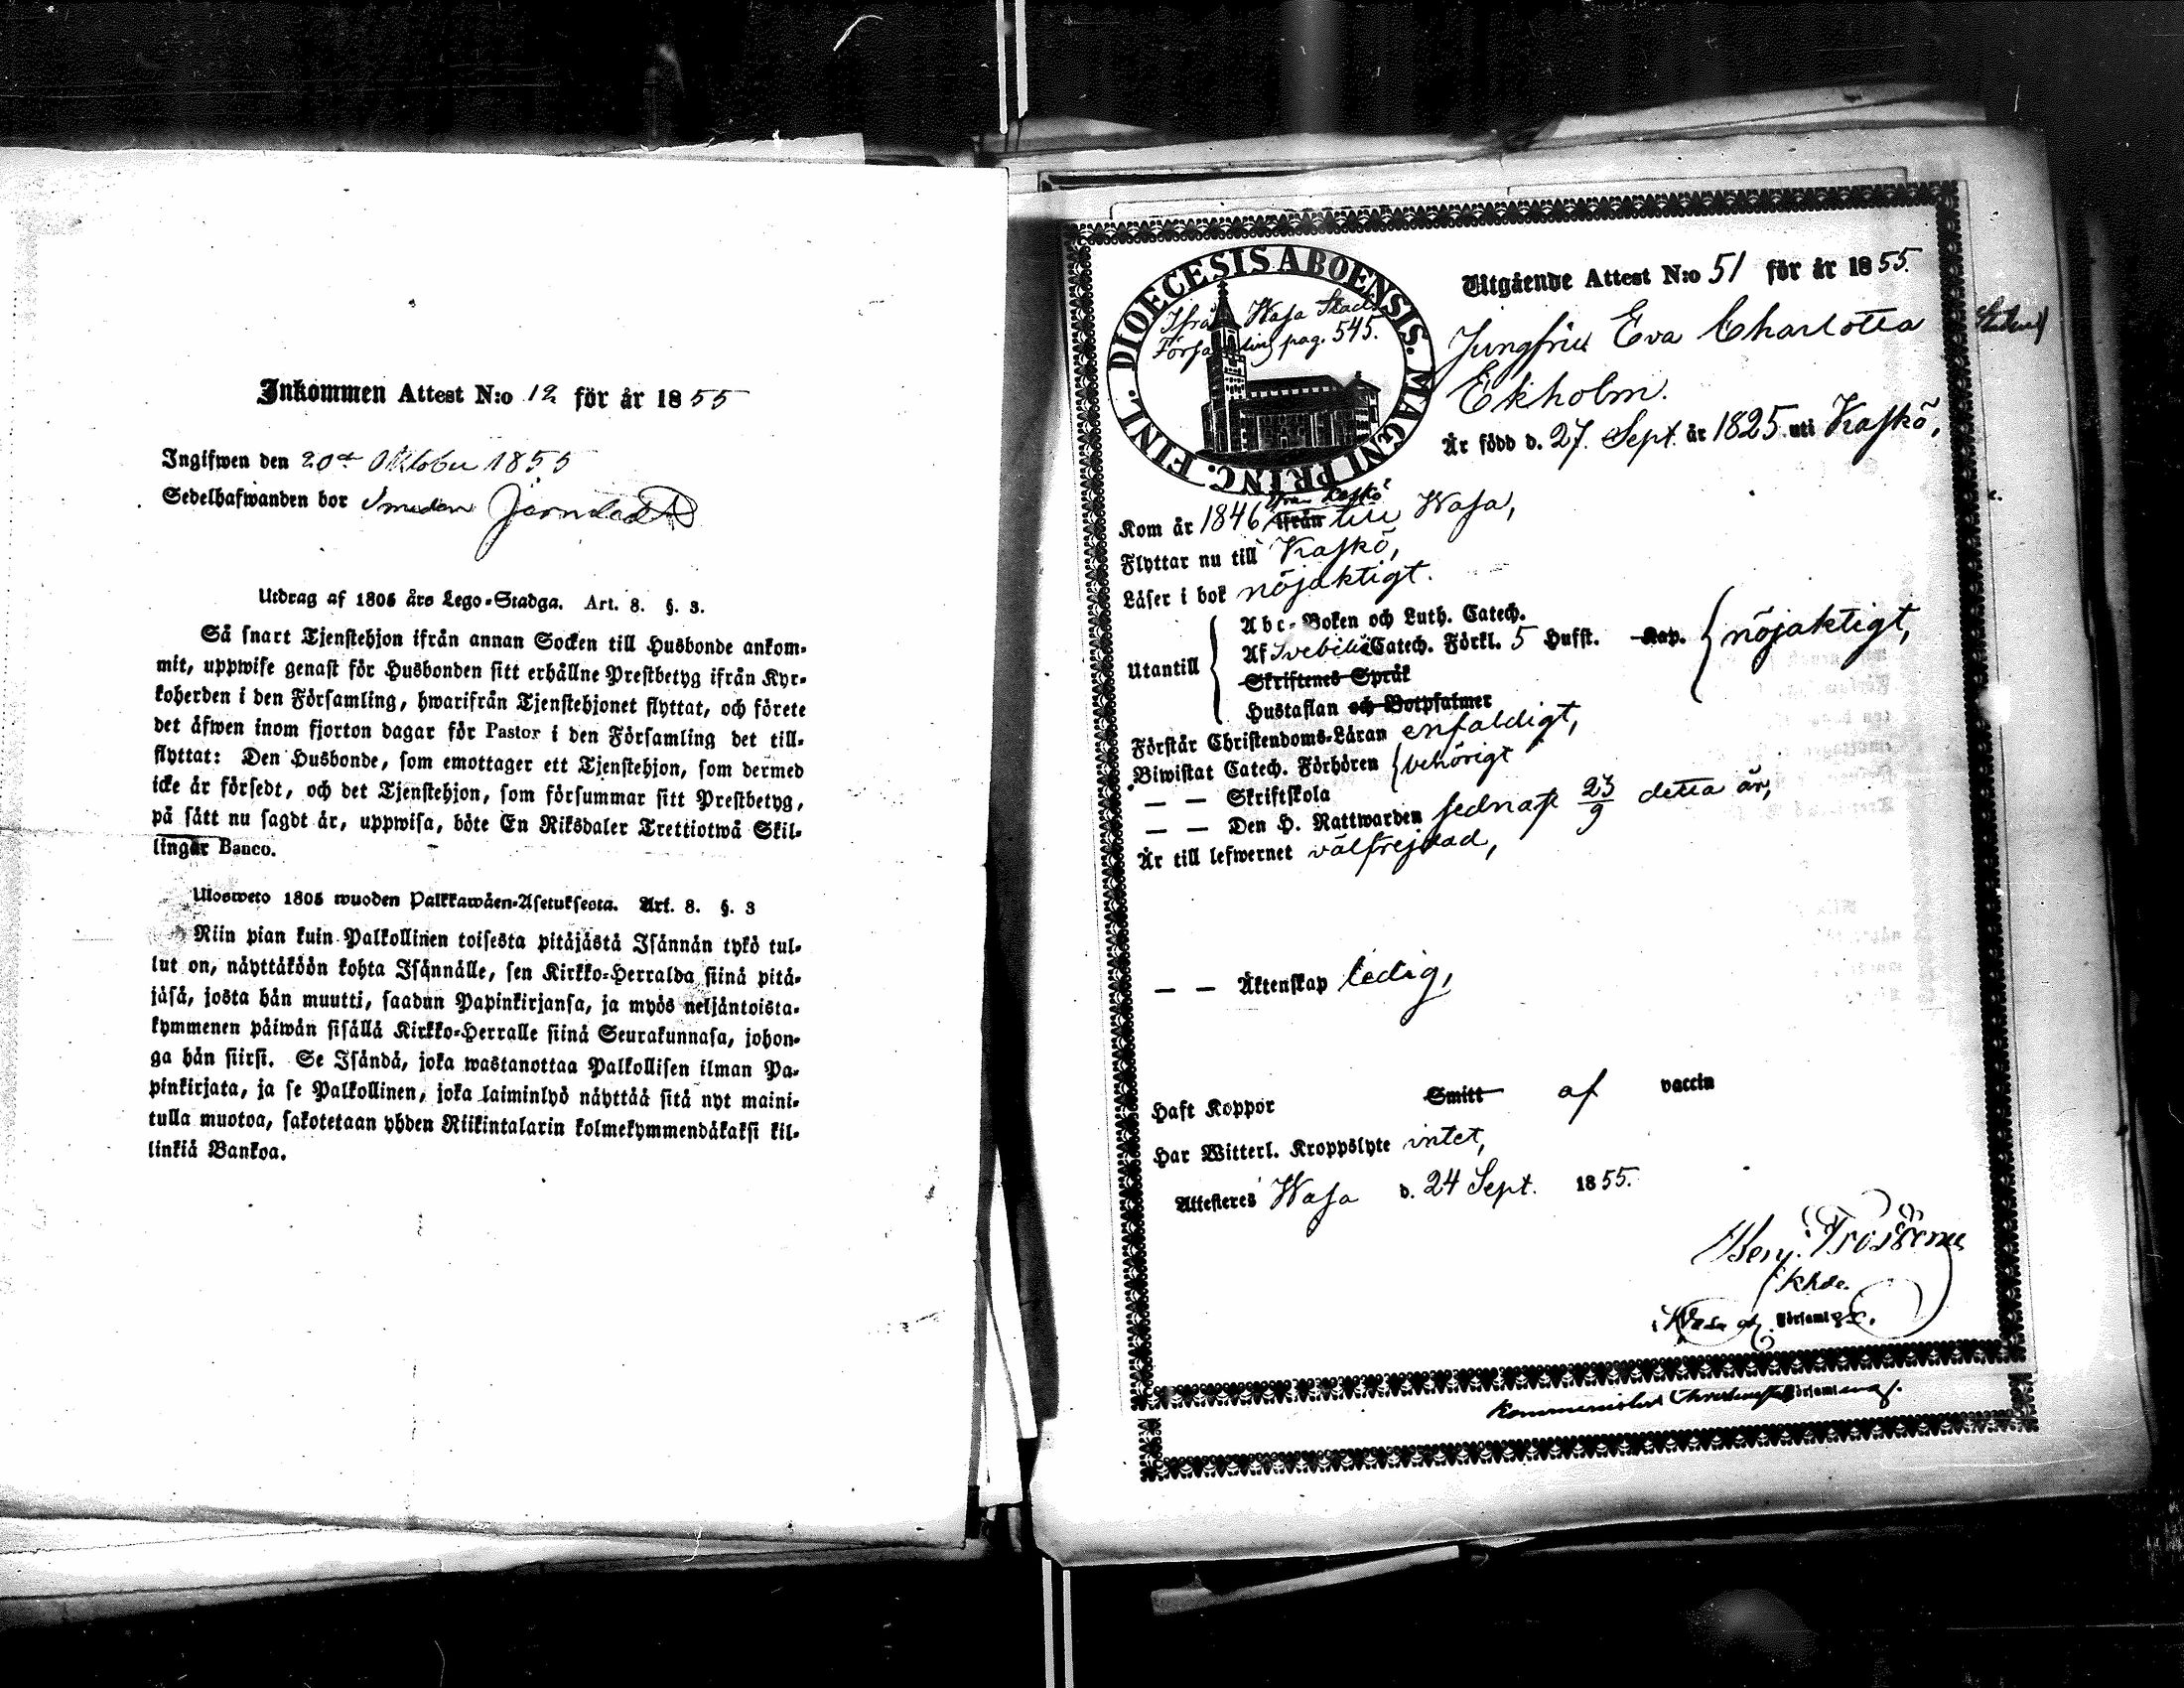 Inkommen Attest N:o 12 för år 1855
Ingifwen den 20de Oktober 1855
Sedelhafwanden bor Smeden
Utdrag af 1805 års Lego-Stadga. Art. 8. §. 3.
Så snart Tjenstehjon ifrån annan Socken till Husbonde ankom-
mit, uppwise genast för Husbonden sitt erhållne Prestbetyg ifrån Kyr-
koherden i den Församling, hwarifrån Tjenstehjonet flyttat, och förete
det äfwen inom fjorton dagar för Pastor i den Församling det till-
flyttat: Den Husbonde, som emottager ett Tjenstehjon, som dermed
icke är försedt, och det Tjenstehjon, som försummar sitt Prestbetyg,
på sätt nu sagdt är, uppwisa, böte En Riksdaler Trettiotwå Skil-
lingar Banco.
Ulosweto 1805 wuoden Palkkawäen-Asetuksesta. Art. 8. §. 3
Niin pian kuin Palkollinen toisesta pitäjästä Isännän tykö tul-
lut on, näyttäköön kohta Isännälle, sen Kirkko-Herralda siinä pitä-
jäsä, josta hän muutti, saadun Papinkirjansa, ja myös neljäntoista-
kymmenen päiwän sisällä Kirkko-Herralle siinä Seurakunnasa, johon-
ga hän siirsi. Se Isändä, joka wastanottaa Palkollisen ilman Pa-
pinkirjata, ja se Palkollinen, joka laiminlyö näyttää sitä nyt maini-
tulla muotoa, sakotetaan yhden Riikintalarin kolmekymmendäkaksi kil-
linkiä Bankoa.
DIOECESIS ABOENSIS. MAGNI PRINC. FINL.
Ifrån Wasa Stads
Församling pag. 545.
Utgående Attest N:o 51 för år 1855.
Jungfru Eva Charlotta
Ekholm.
Är född d. 27 Sept. år 1825 uti Kaskö,
ifrån Kaskö
Kom år 1846 ifrån till Wasa,
Flyttar nu till Kaskö,
Läser i bok nöjaktigt.
Utantill
Abc-Boken och Luth. Catech.
Af Svebilii Catech. Förkl. 5 Hufst. Kap. nöjaktigt,
Skriftenes Språk
Hustaflan och Botpsalmer
Förstår Christendoms-Läran enfaldigt,
Biwistat Catech. Förhören behörigt
— — Skriftskola
— — Den H. Nattwarden sednast 23/9 detta år,
Är till lefwernet välfrejdad,
— — Äktenskap ledig,
Haft Koppor Smitt af vaccin
Har Witterl. Kroppslyte intet,
Attesteres Wasa d. 24 Sept. 1855.
Khde.
Församl
Församl